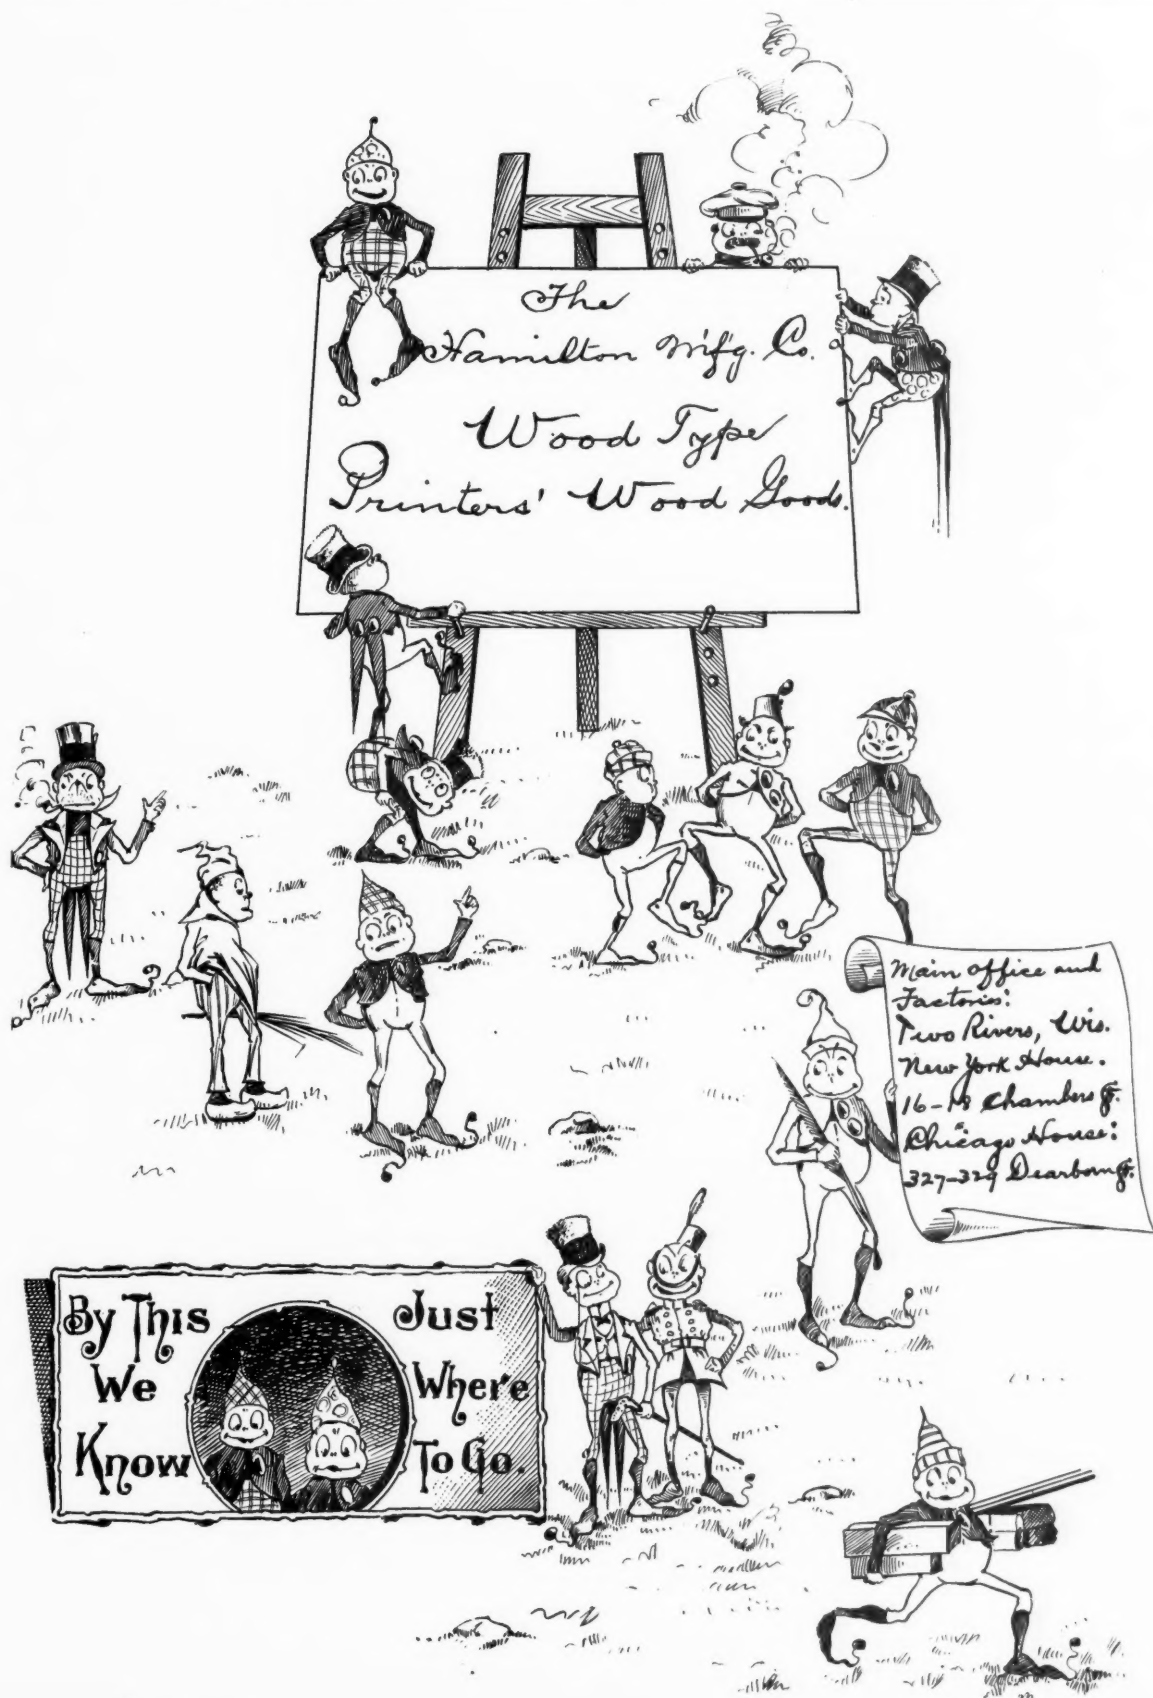 The
Hamilton M'f'g. Co.
Wood Type
Printers' Wood Goods.
Main office and
Factories:
Two Rivers, Wis.
New York House.
16-18 Chambers St.
Chicago House:
327-329 Dearborn St.
By This
We
Know
Just
Where
To Go.